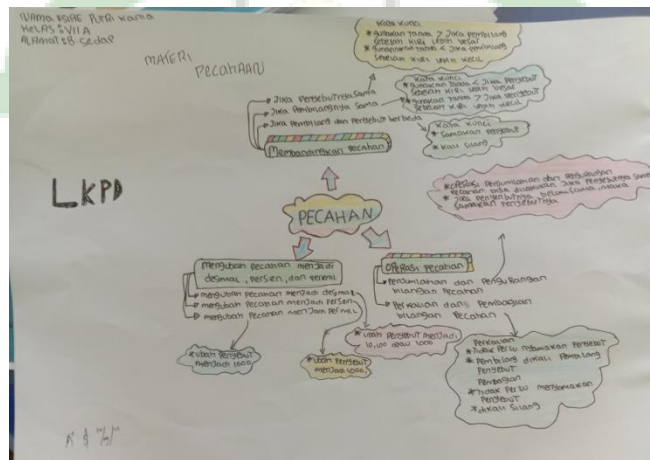 NAMA
KELAS : VII A
MATERI
PECAHAAN
LKPD
Kata kunci
* gunakan tanda > Jika pembilang
sebelah kiri lebih besar
* gunakan tanda < Jika pembilang
sebelah kiri lebih kecil
Kata kunci
* gunakan tanda < Jika Penyebut
sebelah kiri lebih besar
* gunakan tanda > Jika Penyebut
sebelah kiri lebih kecil
Kata kunci
* samakan penyebut
* kali silang
Jika Penyebutnya sama
Jika Pembilangnya sama
Jika Pembilang dan Penyebut berbeda
Membandingkan Pecahan
PECAHAN
* Operasi Penjumlahan dan Pengurangan
Pecahan bisa dilakukan Jika Penyebutnya sama
* Jika Penyebutnya belum sama, maka
samakan penyebutnya
Mengubah Pecahan menjadi
desimal, Persen, dan Permil
mengubah Pecahan menjadi desimal
mengubah Pecahan menjadi Persen
mengubah Pecahan menjadi Permil
* ubah Penyebut
menjadi 1000
* ubah Penyebut
menjadi 1000
* ubah Penyebut menjadi
10,100 atau 1000
Operasi Pecahan
Penjumlahan dan Pengurangan
bilangan Pecahan
Perkalian dan Pembagian
bilangan Pecahan
Perkalian
* Tidak Perlu nyamakan Penyebut
* Pembilang dikali Pembilang
Penyebut
Pembagian
* Tidak Perlu menyamakan
Penyebut
* dikali Silang